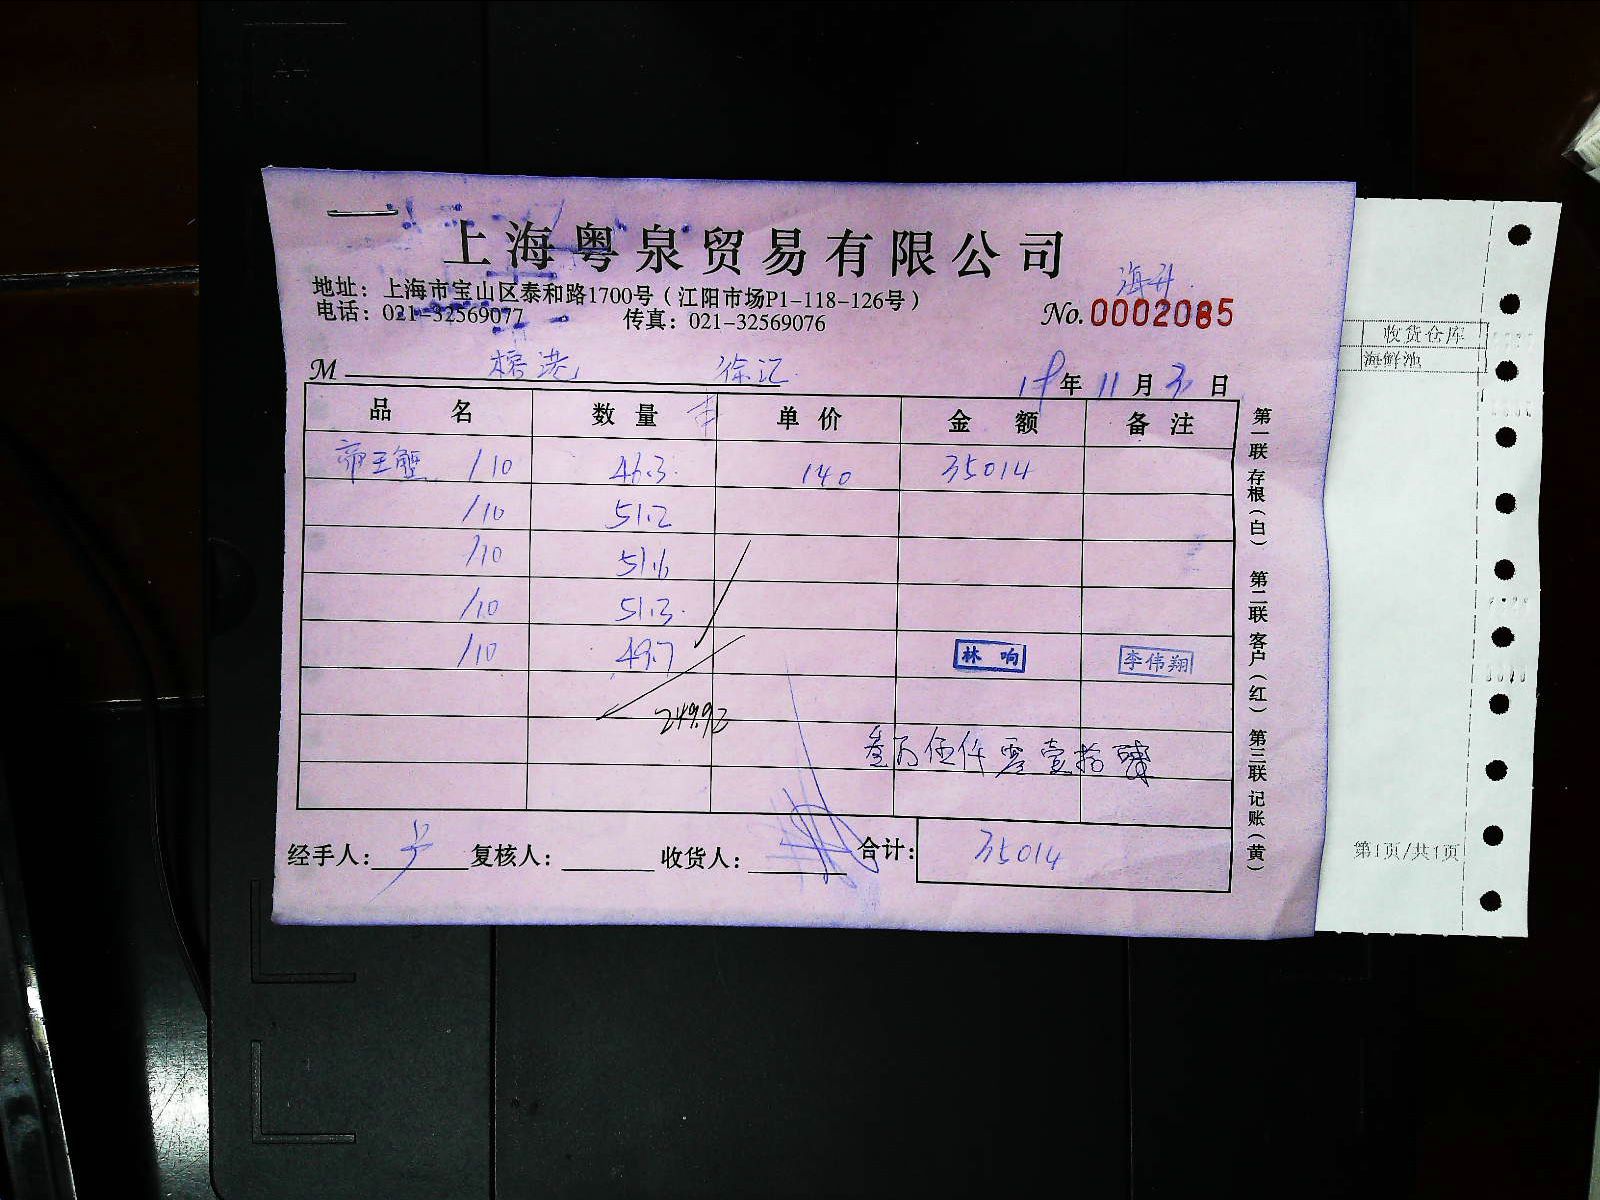 上海粤泉贸易有限公司
地址：上海市宝山区泰和路1700号（江阳市场P1-118-126号）
海升
电话：021-32569077 传真：021-32569076
No.0002085
M 榕港 徐汇 19年11月3日
品名 数量 斤 单价 金额 备注
帝王蟹 /10 46.3 140 35014
/10 51.2
/10 51.6
/10 51.3
/10 49.7
林响 李伟翔
249.9
叁万伍仟零壹拾肆
经手人： 复核人： 收货人： 合计： 35014
第一联 存根（白） 第二联 客户（红） 第三联 记账（黄）
收货仓库
海鲜池
第1页/共1页